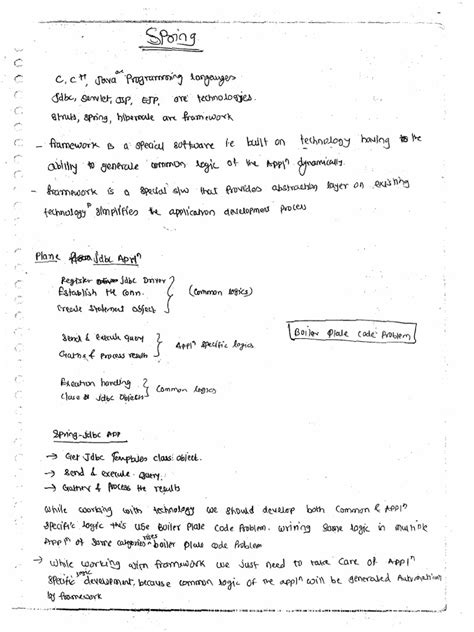 Spring
C, C++, Java are Programming languages
Jdbc, Servlet, JSP, EJP, are technologies.
Struts, Spring, hibernate are framework
- framework is a special software i.e built on technology having the
ability to generate common logic of the Appln dynamically.
- framework is a special s/w that provides abstraction layer on existing
technology simplifies the application development process
Plane Jdbc Appln
Register Jdbc Driver
Establish the conn.
Create Statement object
(Common logics)
Send & execute query
Gather & Process results
Appln specific logics
Boiler Plate Code Problem
Execution handling
Close Jdbc objects
Common logics
Spring-Jdbc APP
→ Get Jdbc Templates class object.
→ Send & execute Query.
→ Gather & Process the results
While working with technology we should develop both Common & Appln
specific logic this use Boiler Plate Code Problem. writing Same logic in multiple
Appln of Same categories boiler plate code Problem
→ While working with framework we Just need to take Care of Appln
specific logic development, because common logic of the appln will be generated Automatically
by framework